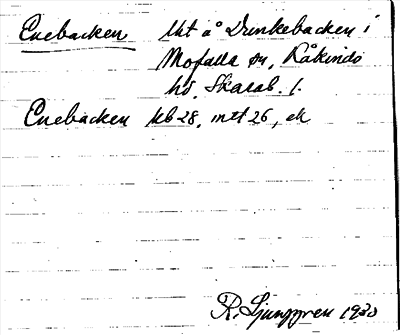 Enebacken Ukt å Dunkebacken i
Mofalla sn, Kåkinds
hd. Skarab. l.
Enebacken kb 28, mtl 26, ek
R. Ljunggren 1930